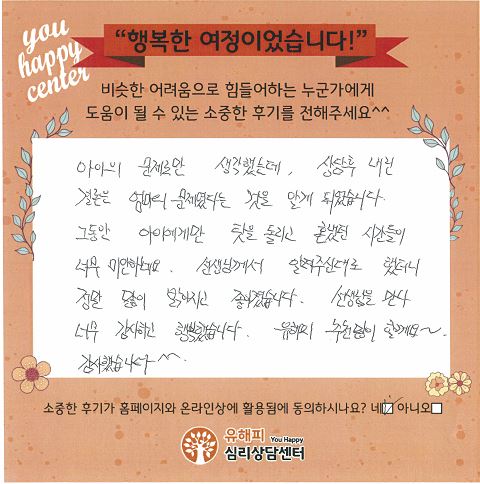 you
happy
center
“행복한 여정이었습니다!”
비슷한 어려움으로 힘들어하는 누군가에게
도움이 될 수 있는 소중한 후기를 전해주세요^^
아이의 문제로만 생각했는데, 상담후 내린
결론은 엄마의 문제였다는 것을 알게 되었습니다.
그동안 아이에게만 탓을 돌리고 혼냈던 시간들이
너무 미안하네요. 선생님께서 알려주신대로 했더니
정말 많이 밝아지고 좋아졌습니다. 선생님을 만나
너무 감사하고 행복했습니다. 유해피 추천많이 할게요~
감사했습니다^^
소중한 후기가 홈페이지와 온라인상에 활용됨에 동의하시나요? 네 아니오
유해피 You Happy
심리상담센터